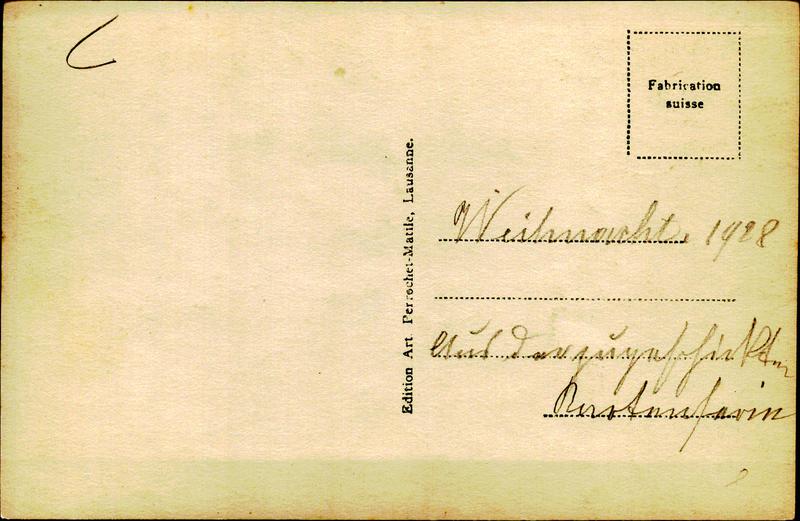 Fabrication
suisse
Edition Art. Perrochet-Matile, Lausanne.
Weihnacht. 1928
Aus der zugeschickten